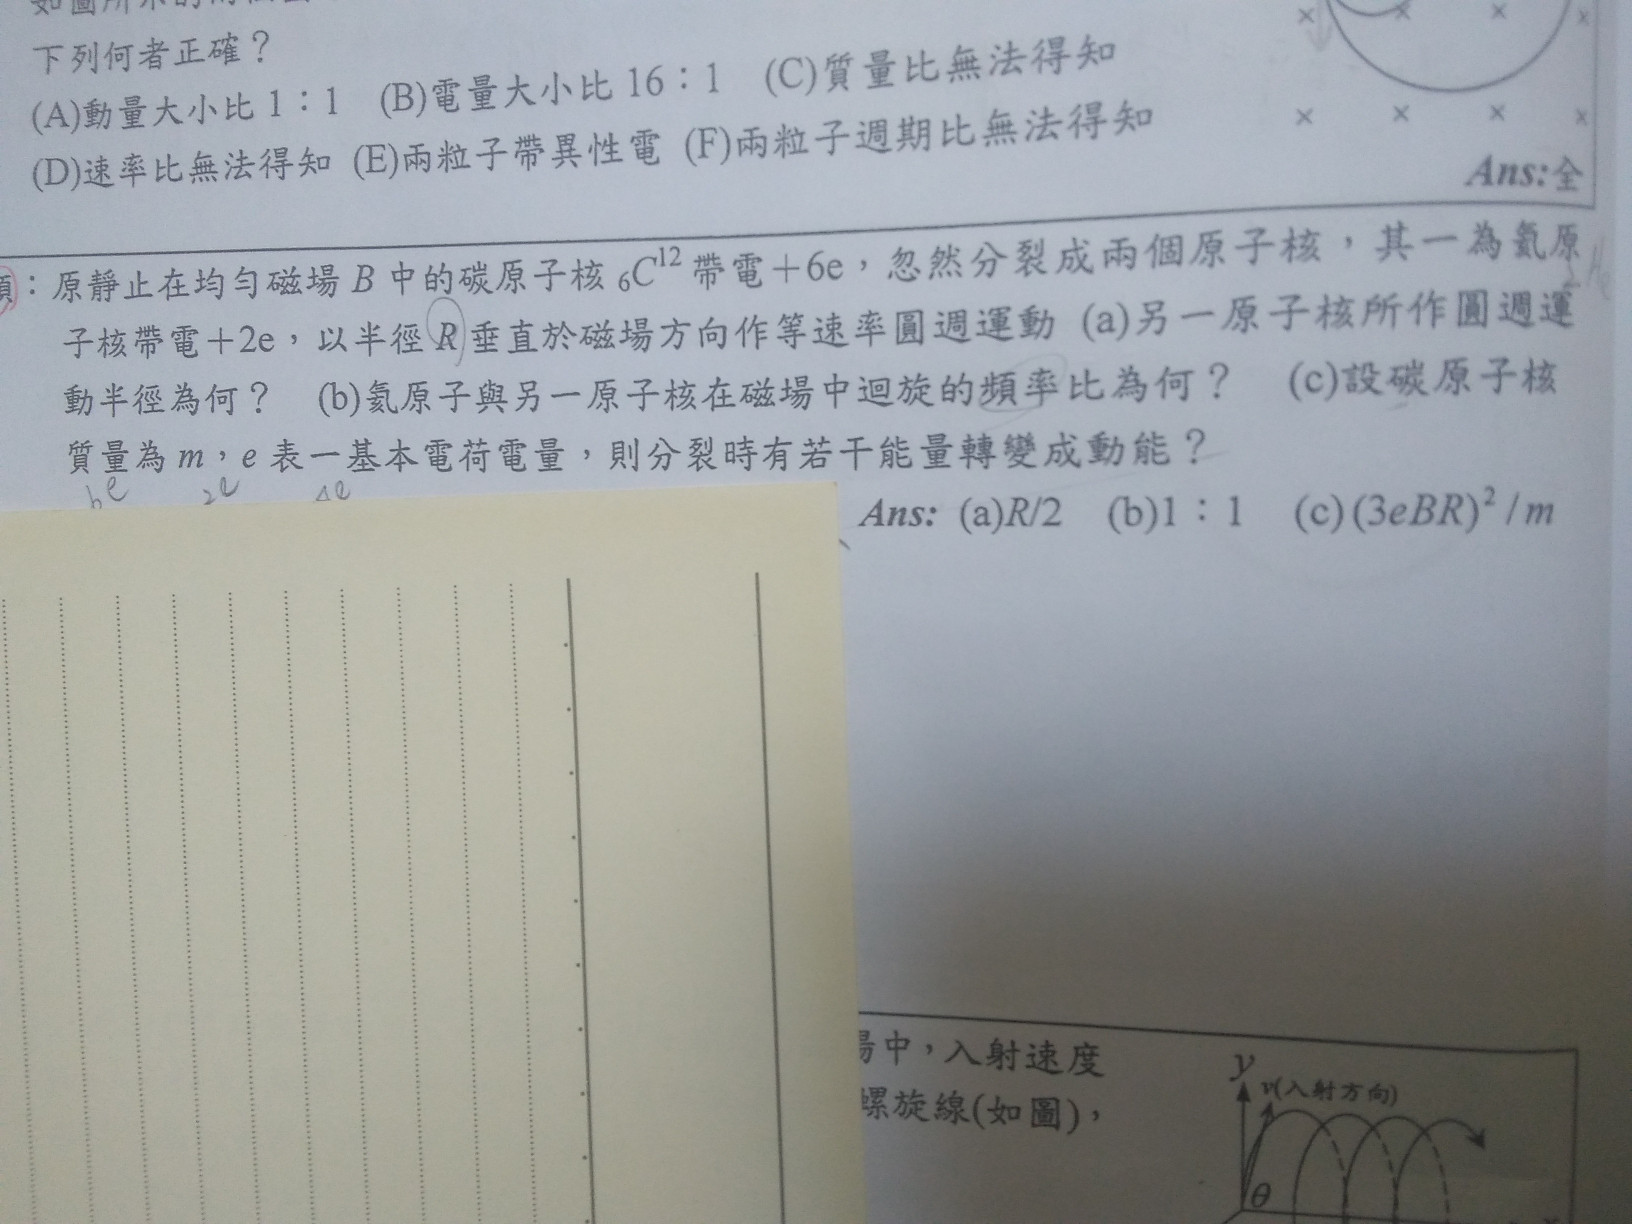 如圖所示的兩個圓
下列何者正確？
(A)動量大小比 1：1 (B)電量大小比 16：1 (C)質量比無法得知
(D)速率比無法得知 (E)兩粒子帶異性電 (F)兩粒子週期比無法得知
Ans:全
：原靜止在均勻磁場 B 中的碳原子核 ₆C¹² 帶電＋6e，忽然分裂成兩個原子核，其一為氦原
子核帶電＋2e，以半徑 R 垂直於磁場方向作等速率圓週運動 (a)另一原子核所作圓週運
動半徑為何？ (b)氦原子與另一原子核在磁場中迴旋的頻率比為何？ (c)設碳原子核
質量為 m，e 表一基本電荷電量，則分裂時有若干能量轉變成動能？
6e 2e 4e
Ans: (a)R/2 (b)1：1 (c)(3eBR)² / m
場中，入射速度
螺旋線(如圖)，
y
v(入射方向)
θ